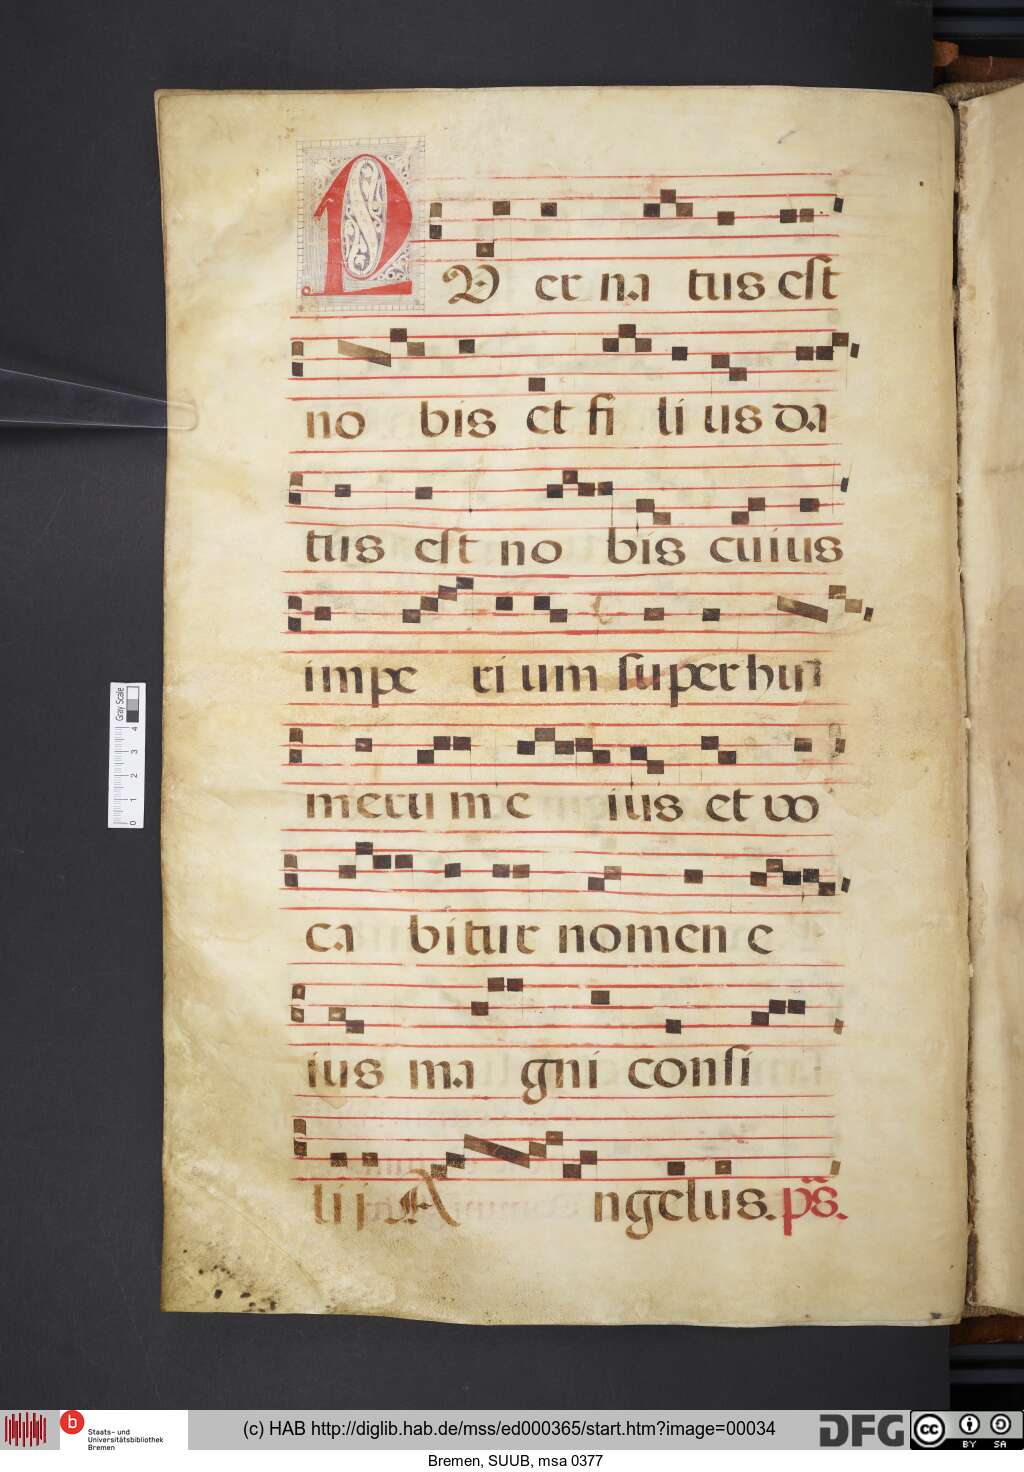 PV er na tus est
no bis et fi li us da
tus est no bis cuius
impe ri um super hun
meru m e ius et vo
ca bitur nomen e
ius ma gni consi
li j A ngelus. ps.
Gray Scale
4
3
2
1
0
b
Staats- und
Universitätsbibliothek
Bremen
(c) HAB http://diglib.hab.de/mss/ed000365/start.htm?image=00034
DFG
cc
BY SA
Bremen, SUUB, msa 0377